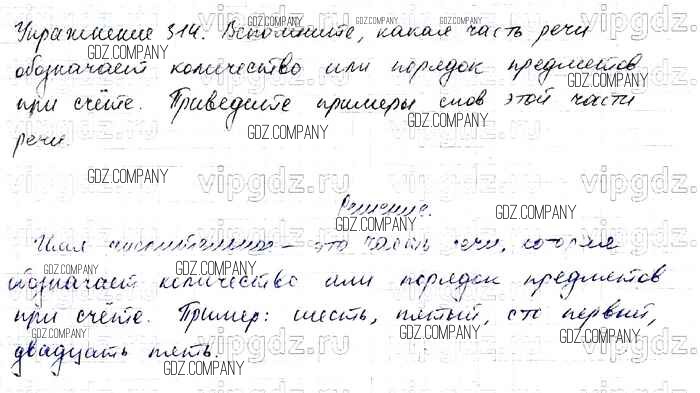 Упражнение 314. Вспомните, какая часть речи
обозначает количество или порядок предметов
при счёте. Приведите примеры слов этой части
речи.
Решение.
Имя числительное – это часть речи, которая
обозначает количество или порядок предметов
при счёте. Пример: шесть, пятый, сто первый,
двадцать пять.
GDZ.COMPANY
vipgdz.ru